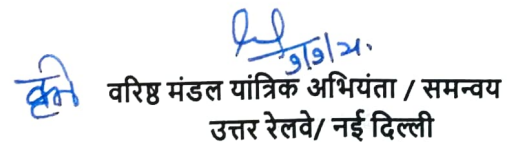 9/9/21.
कृते वरिष्ठ मंडल यांत्रिक अभियंता / समन्वय
उत्तर रेलवे/ नई दिल्ली